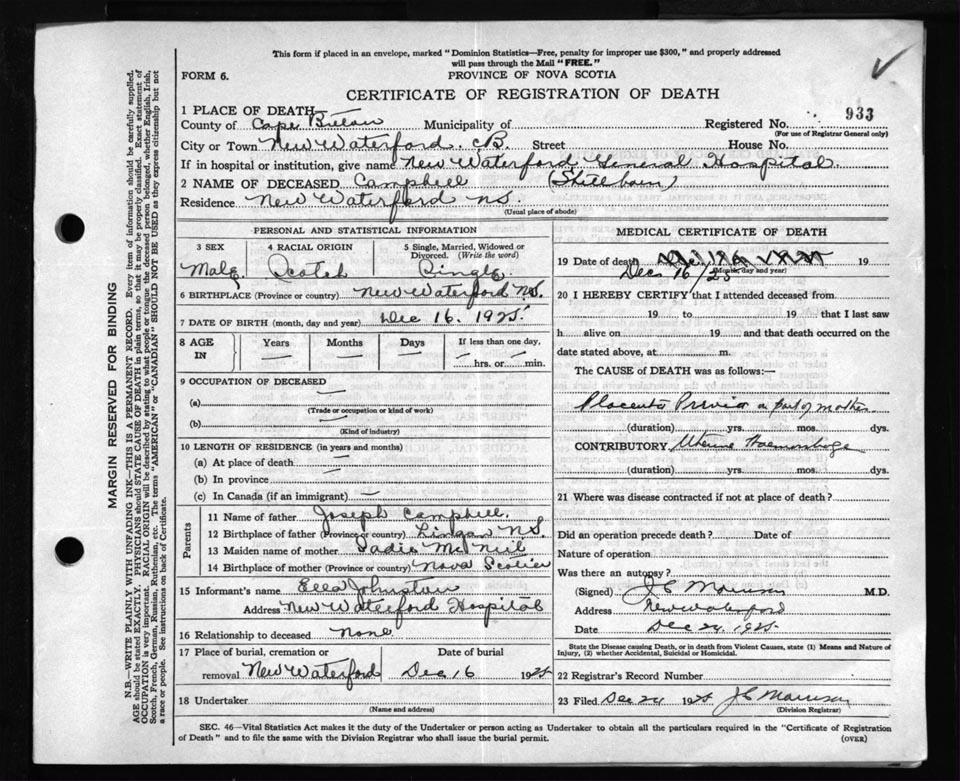 This form if placed in an envelope, marked "Dominion Statistics—Free, penalty for improper use $300," and properly addressed
will pass through the Mail "FREE."
FORM 6.
PROVINCE OF NOVA SCOTIA
CERTIFICATE OF REGISTRATION OF DEATH
1 PLACE OF DEATH—
County of Cape Breton Municipality of Registered No. 933
(For use of Registrar General only)
City or Town New Waterford. CB. Street House No.
If in hospital or institution, give name New Waterford General Hospital.
2 NAME OF DECEASED Campbell (Stillborn)
Residence New Waterford NS.
(Usual place of abode)
PERSONAL AND STATISTICAL INFORMATION
3 SEX 4 RACIAL ORIGIN 5 Single, Married, Widowed or Divorced. (Write the word)
Male Scotch Single.
6 BIRTHPLACE (Province or country) New Waterford N.S.
7 DATE OF BIRTH (month, day and year) Dec 16. 1925.
8 AGE IN Years Months Days If less than one day,
— — — hrs. or min.
9 OCCUPATION OF DECEASED
(a) —
(Trade or occupation or kind of work)
(b) —
(Kind of industry)
10 LENGTH OF RESIDENCE (in years and months)
(a) At place of death —
(b) In province —
(c) In Canada (if an immigrant) —
Parents
11 Name of father Joseph Campbell.
12 Birthplace of father (Province or country) Lingan N.S.
13 Maiden name of mother Sadie McNeil
14 Birthplace of mother (Province or country) Nova Scotia
15 Informant's name Ella Johnston
Address New Waterford Hospital
16 Relationship to deceased None.
17 Place of burial, cremation or removal Date of burial
New Waterford Dec 16 1925
18 Undertaker
(Name and address)
MEDICAL CERTIFICATE OF DEATH
19 Date of death 19
(Month, day and year)
Dec 16/25
20 I HEREBY CERTIFY that I attended deceased from
19 to 19 that I last saw
h alive on 19 and that death occurred on
date stated above, at m.
The CAUSE of DEATH was as follows:—
Placenta Previa on part of mother
(duration) yrs. mos. dys.
CONTRIBUTORY Uterine Haemorrhage
(duration) yrs. mos. dys.
21 Where was disease contracted if not at place of death?
Did an operation precede death? Date of
Nature of operation
Was there an autopsy?
(Signed) J C Morrison M.D.
Address New Waterford
Date Dec 24. 1925.
State the Disease causing Death, or in death from Violent Causes, state (1) Means and Nature of
Injury, (2) whether Accidental, Suicidal or Homicidal.
22 Registrar's Record Number
23 Filed Dec 24 1925 J C Morrison
(Division Registrar)
SEC. 46—Vital Statistics Act makes it the duty of the Undertaker or person acting as Undertaker to obtain all the particulars required in the "Certificate of Registration
of Death" and to file the same with the Division Registrar who shall issue the burial permit. (OVER)
MARGIN RESERVED FOR BINDING
N.B.—WRITE PLAINLY WITH UNFADING INK—THIS IS A PERMANENT RECORD. Every item of information should be carefully supplied.
AGE should be stated EXACTLY. PHYSICIANS should STATE CAUSE OF DEATH in plain terms, so that it may be properly classified. Exact statement of
OCCUPATION is very important. RACIAL ORIGIN will be described by stating to what people or tongue the deceased person belonged, whether English, Irish,
Scotch, French, German, Russian, Ruthenian, etc. The terms "AMERICAN" or "CANADIAN" SHOULD NOT BE USED as they express citizenship but not
a race or people. See instructions on back of Certificate.